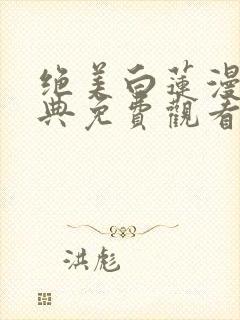 绝美白莲漫
典免費觀看
洪彪